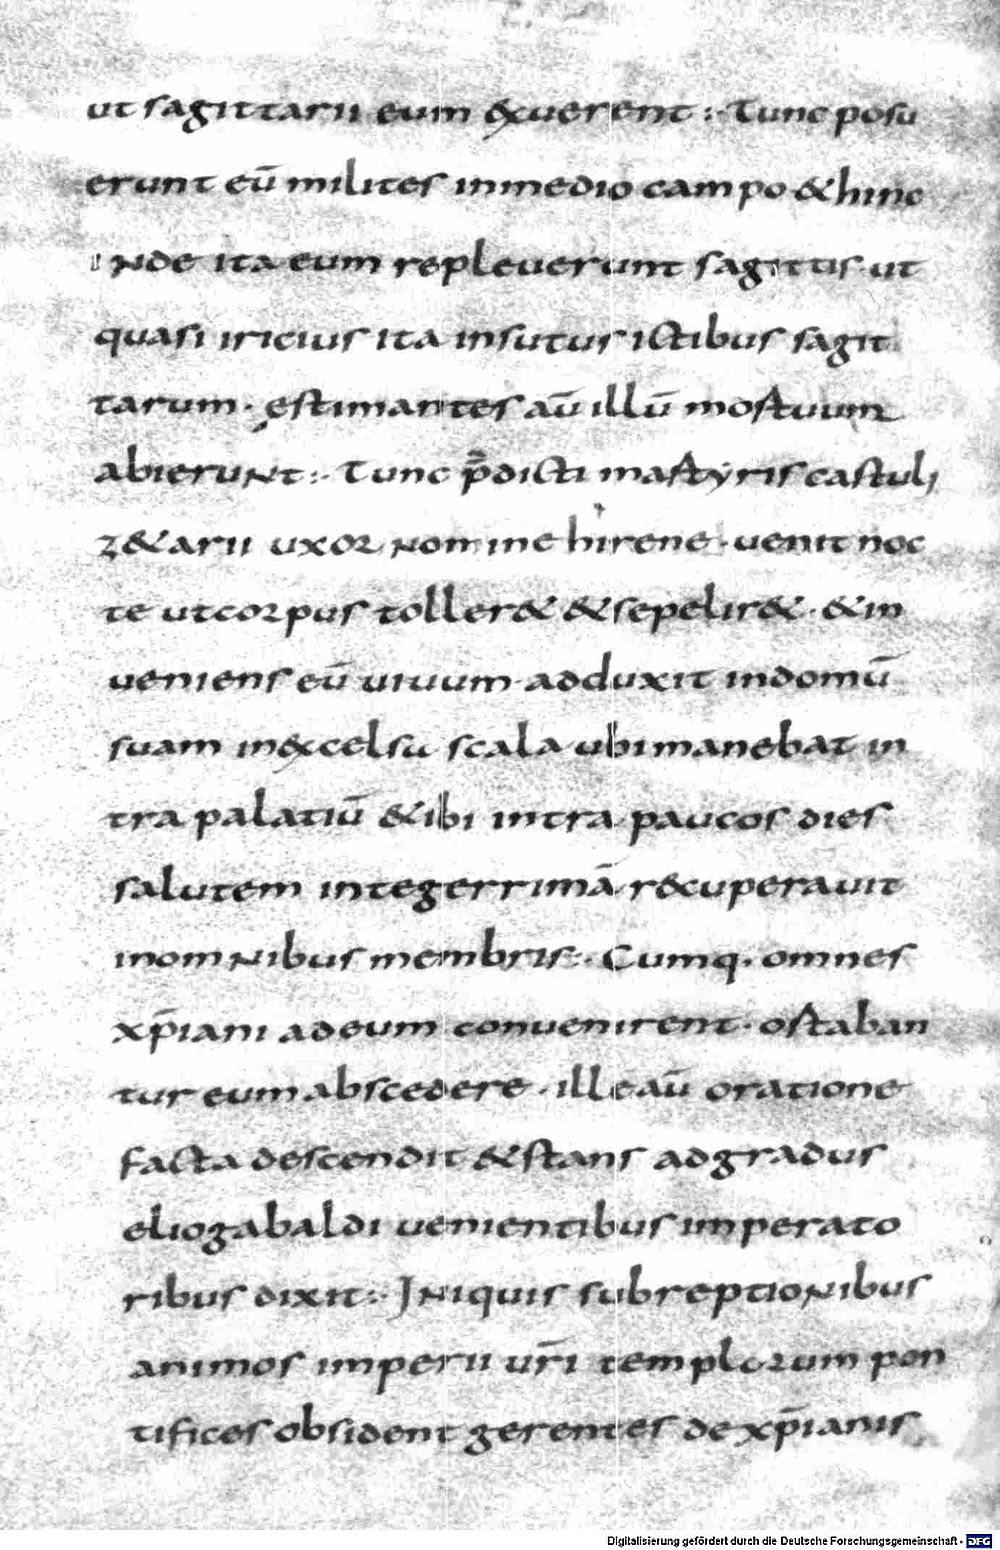 ut sagittarii eum &xuerent :· Tunc posu
erunt eū milites inmedio campo & hinc
inde ita eum repleuerunt sagittis· ut
quasi iricius ita insutus ictibus sagit
tarum · estimantes aū illū mortuum
abierunt :· Tunc p̄dicti martyris castuli
z&arii uxor nomine hirene · uenit noc
te utcorpus toller& & sepelir& · & in
ueniens eū uiuum · adduxit indomū
suam in&xcelsu scala ubi manebat in
tra palatiū & ibi intra paucos dies
salutem integerrimā r&cuperauit
inomnibus membris :· Cumq· omnes
xp̄iani adeum conuenirent · ortaban
tur eum abscedere · ille aū oratione
facta descendit & stans adgradus
eliogabaldi uenientibus imperato
ribus dixit :· Iniquis subreptionibus
animos imperii ur̄i templorum pon
tifices obsident gerentes de xp̄ianis
Digitalisierung gefördert durch die Deutsche Forschungsgemeinschaft - DFG